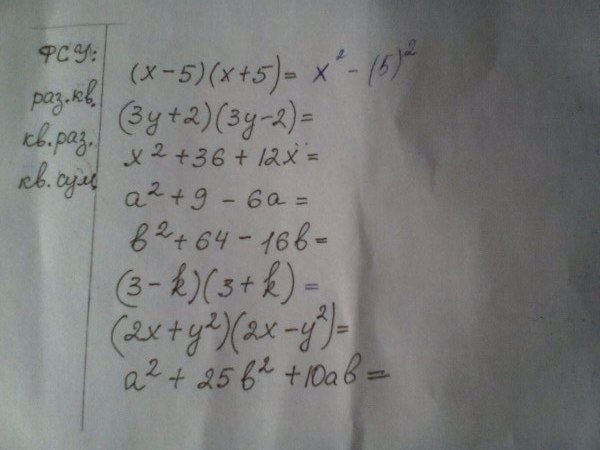 ФСУ:
раз.кв.
кв.раз.
кв.сум.
(x-5)(x+5)= x² - (5)²
(3y+2)(3y-2)=
x²+36+12x=
a²+9-6a=
в²+64-16в=
(3-k)(3+k)=
(2x+y²)(2x-y²)=
a²+25в²+10aв=